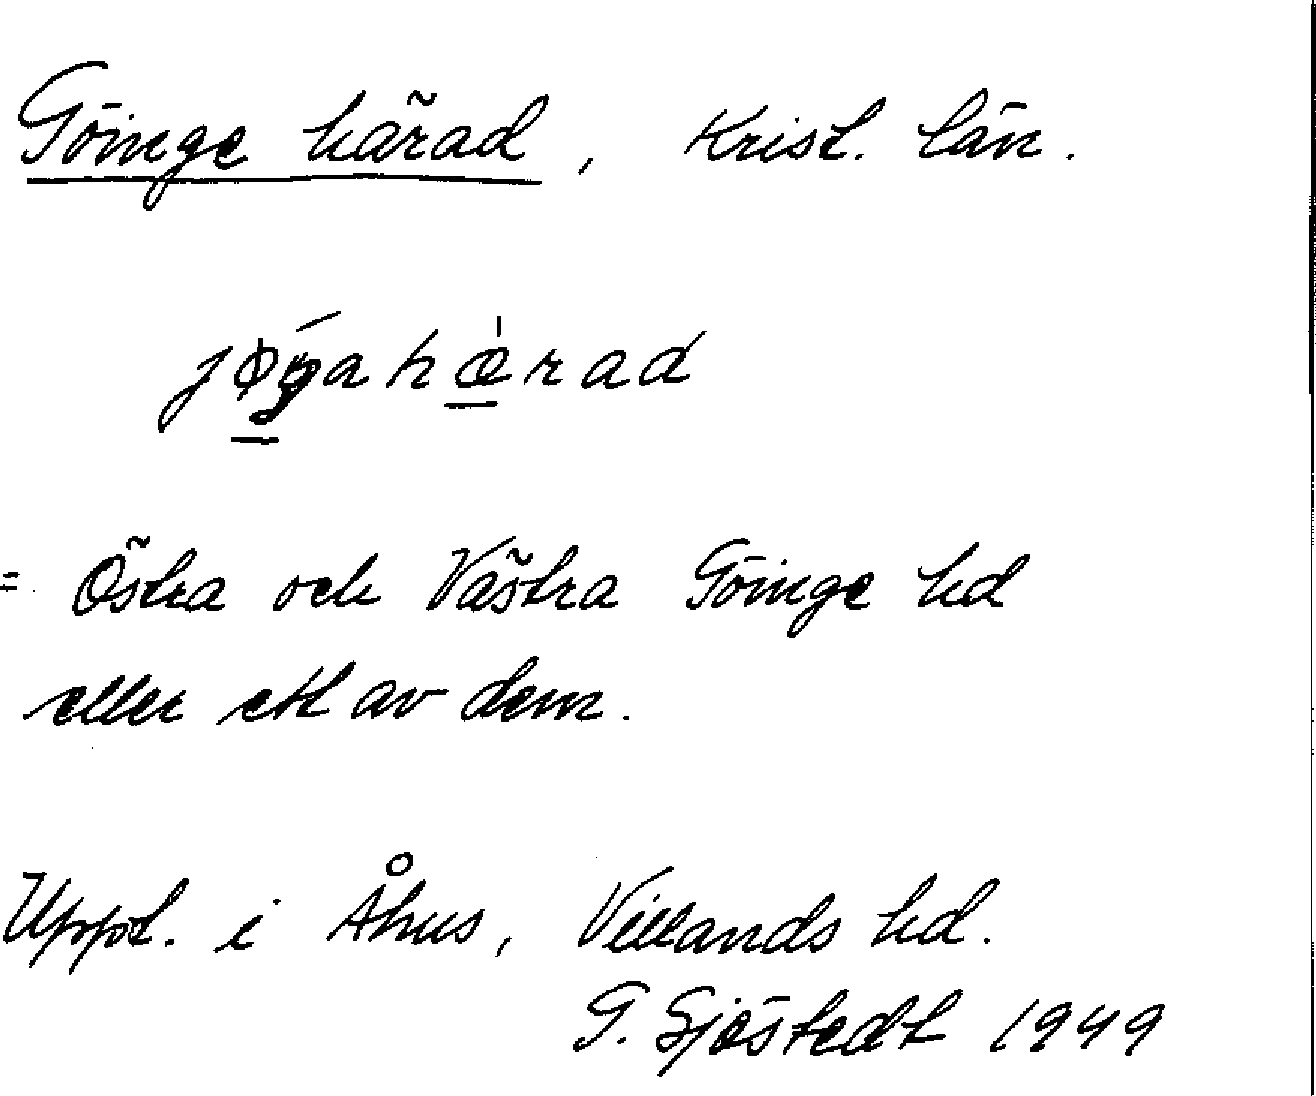 Göinge härad, Krist. län.
jøŋahærad
= Östra och Västra Göinge hd
eller ett av dem.
Uppt. i Åhus, Villands hd.
G. Sjöstedt 1949